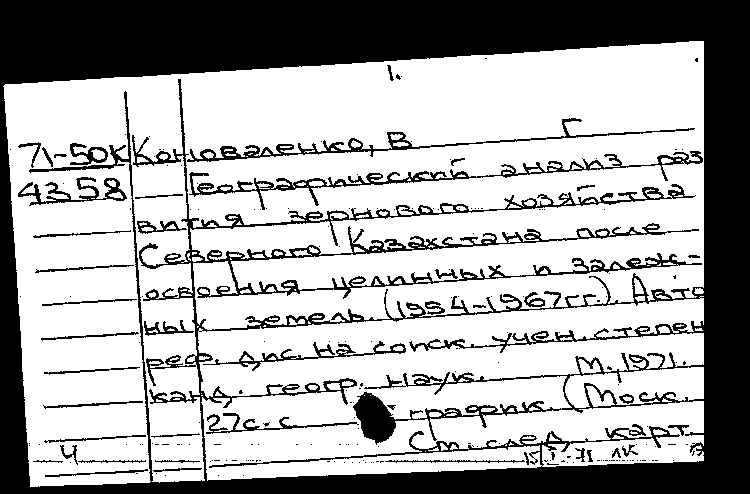 1.
71-50к Коноваленко, В Г
4358 Географический анализ раз
вития зернового хозяйства
Северного Казахстана после
освоения целинных и залеж-
ных земель. (1954-1967гг.). Авто
реф. дис. на соиск. учен. степен
канд. геогр. наук. М., 1971.
27с. с график. (Моск.
См. след. карт.
Ч 15/I-71 лк